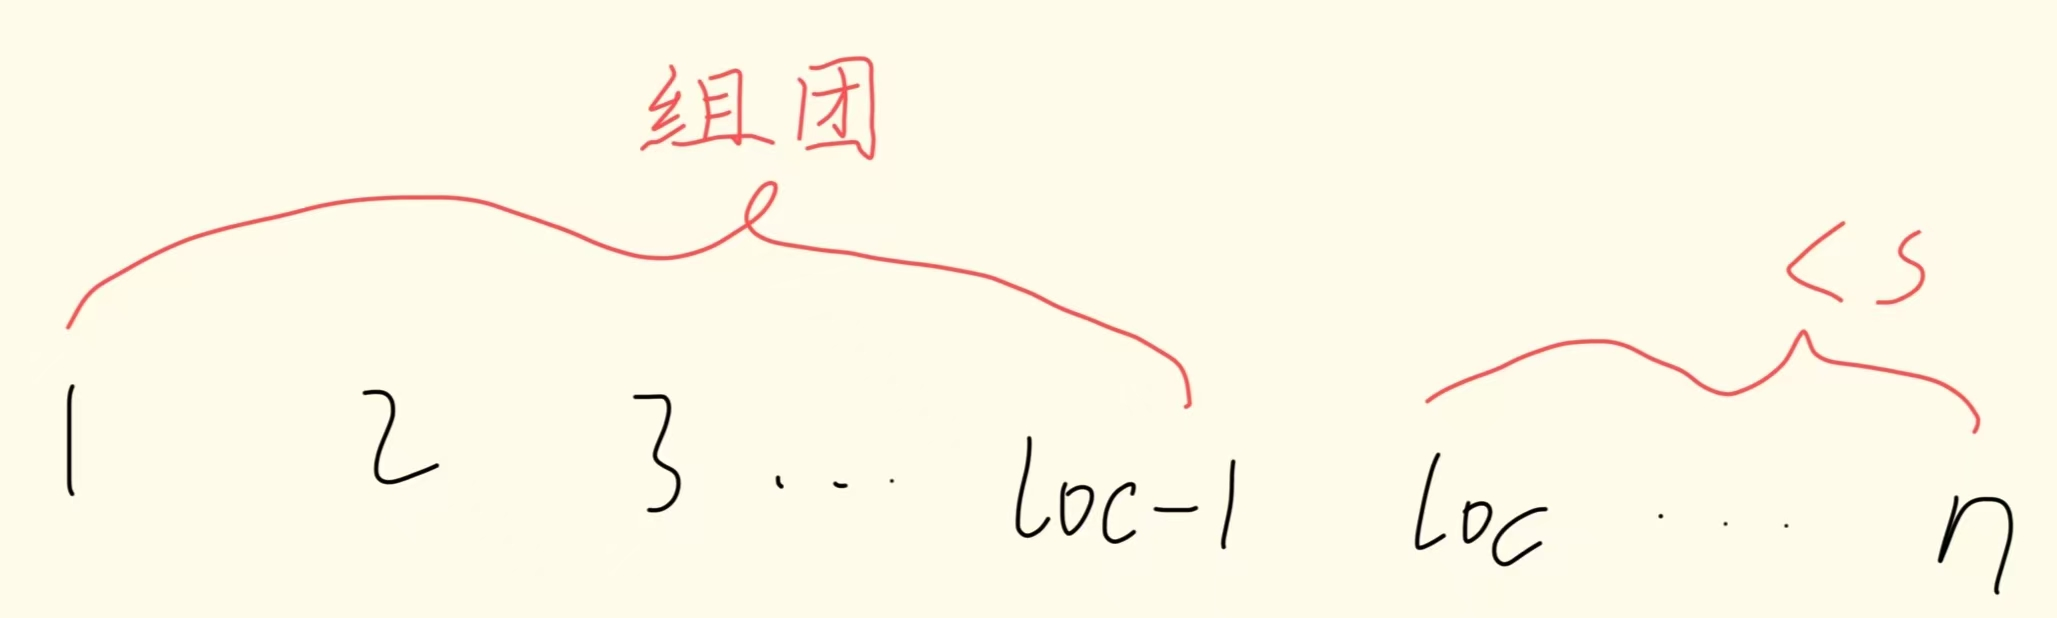 组团
< s
1 2 3 ... loc-1 loc ... n